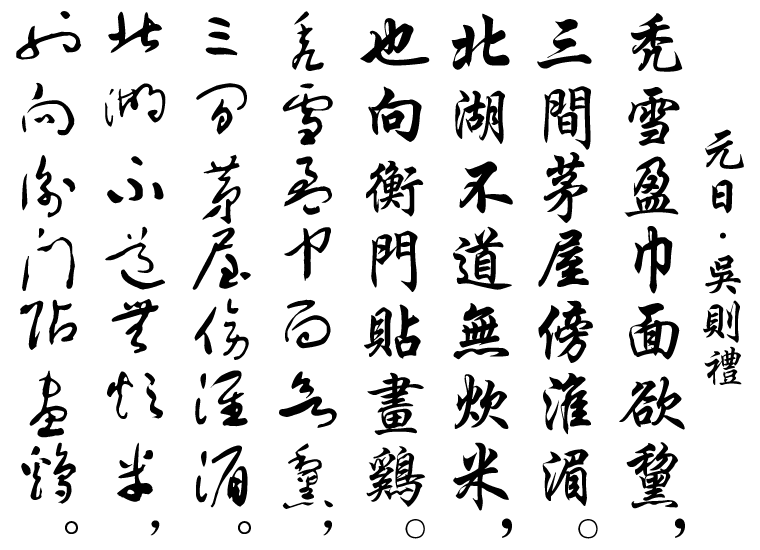 元日·吳則禮
禿雪盈巾面欲黧，
三間茅屋傍淮湄。
北湖不道無炊米，
也向衡門貼畫鷄。
禿雪盈巾面欲黧，
三間茅屋傍淮湄。
北湖不道無炊米，
也向衡門貼畫鷄。